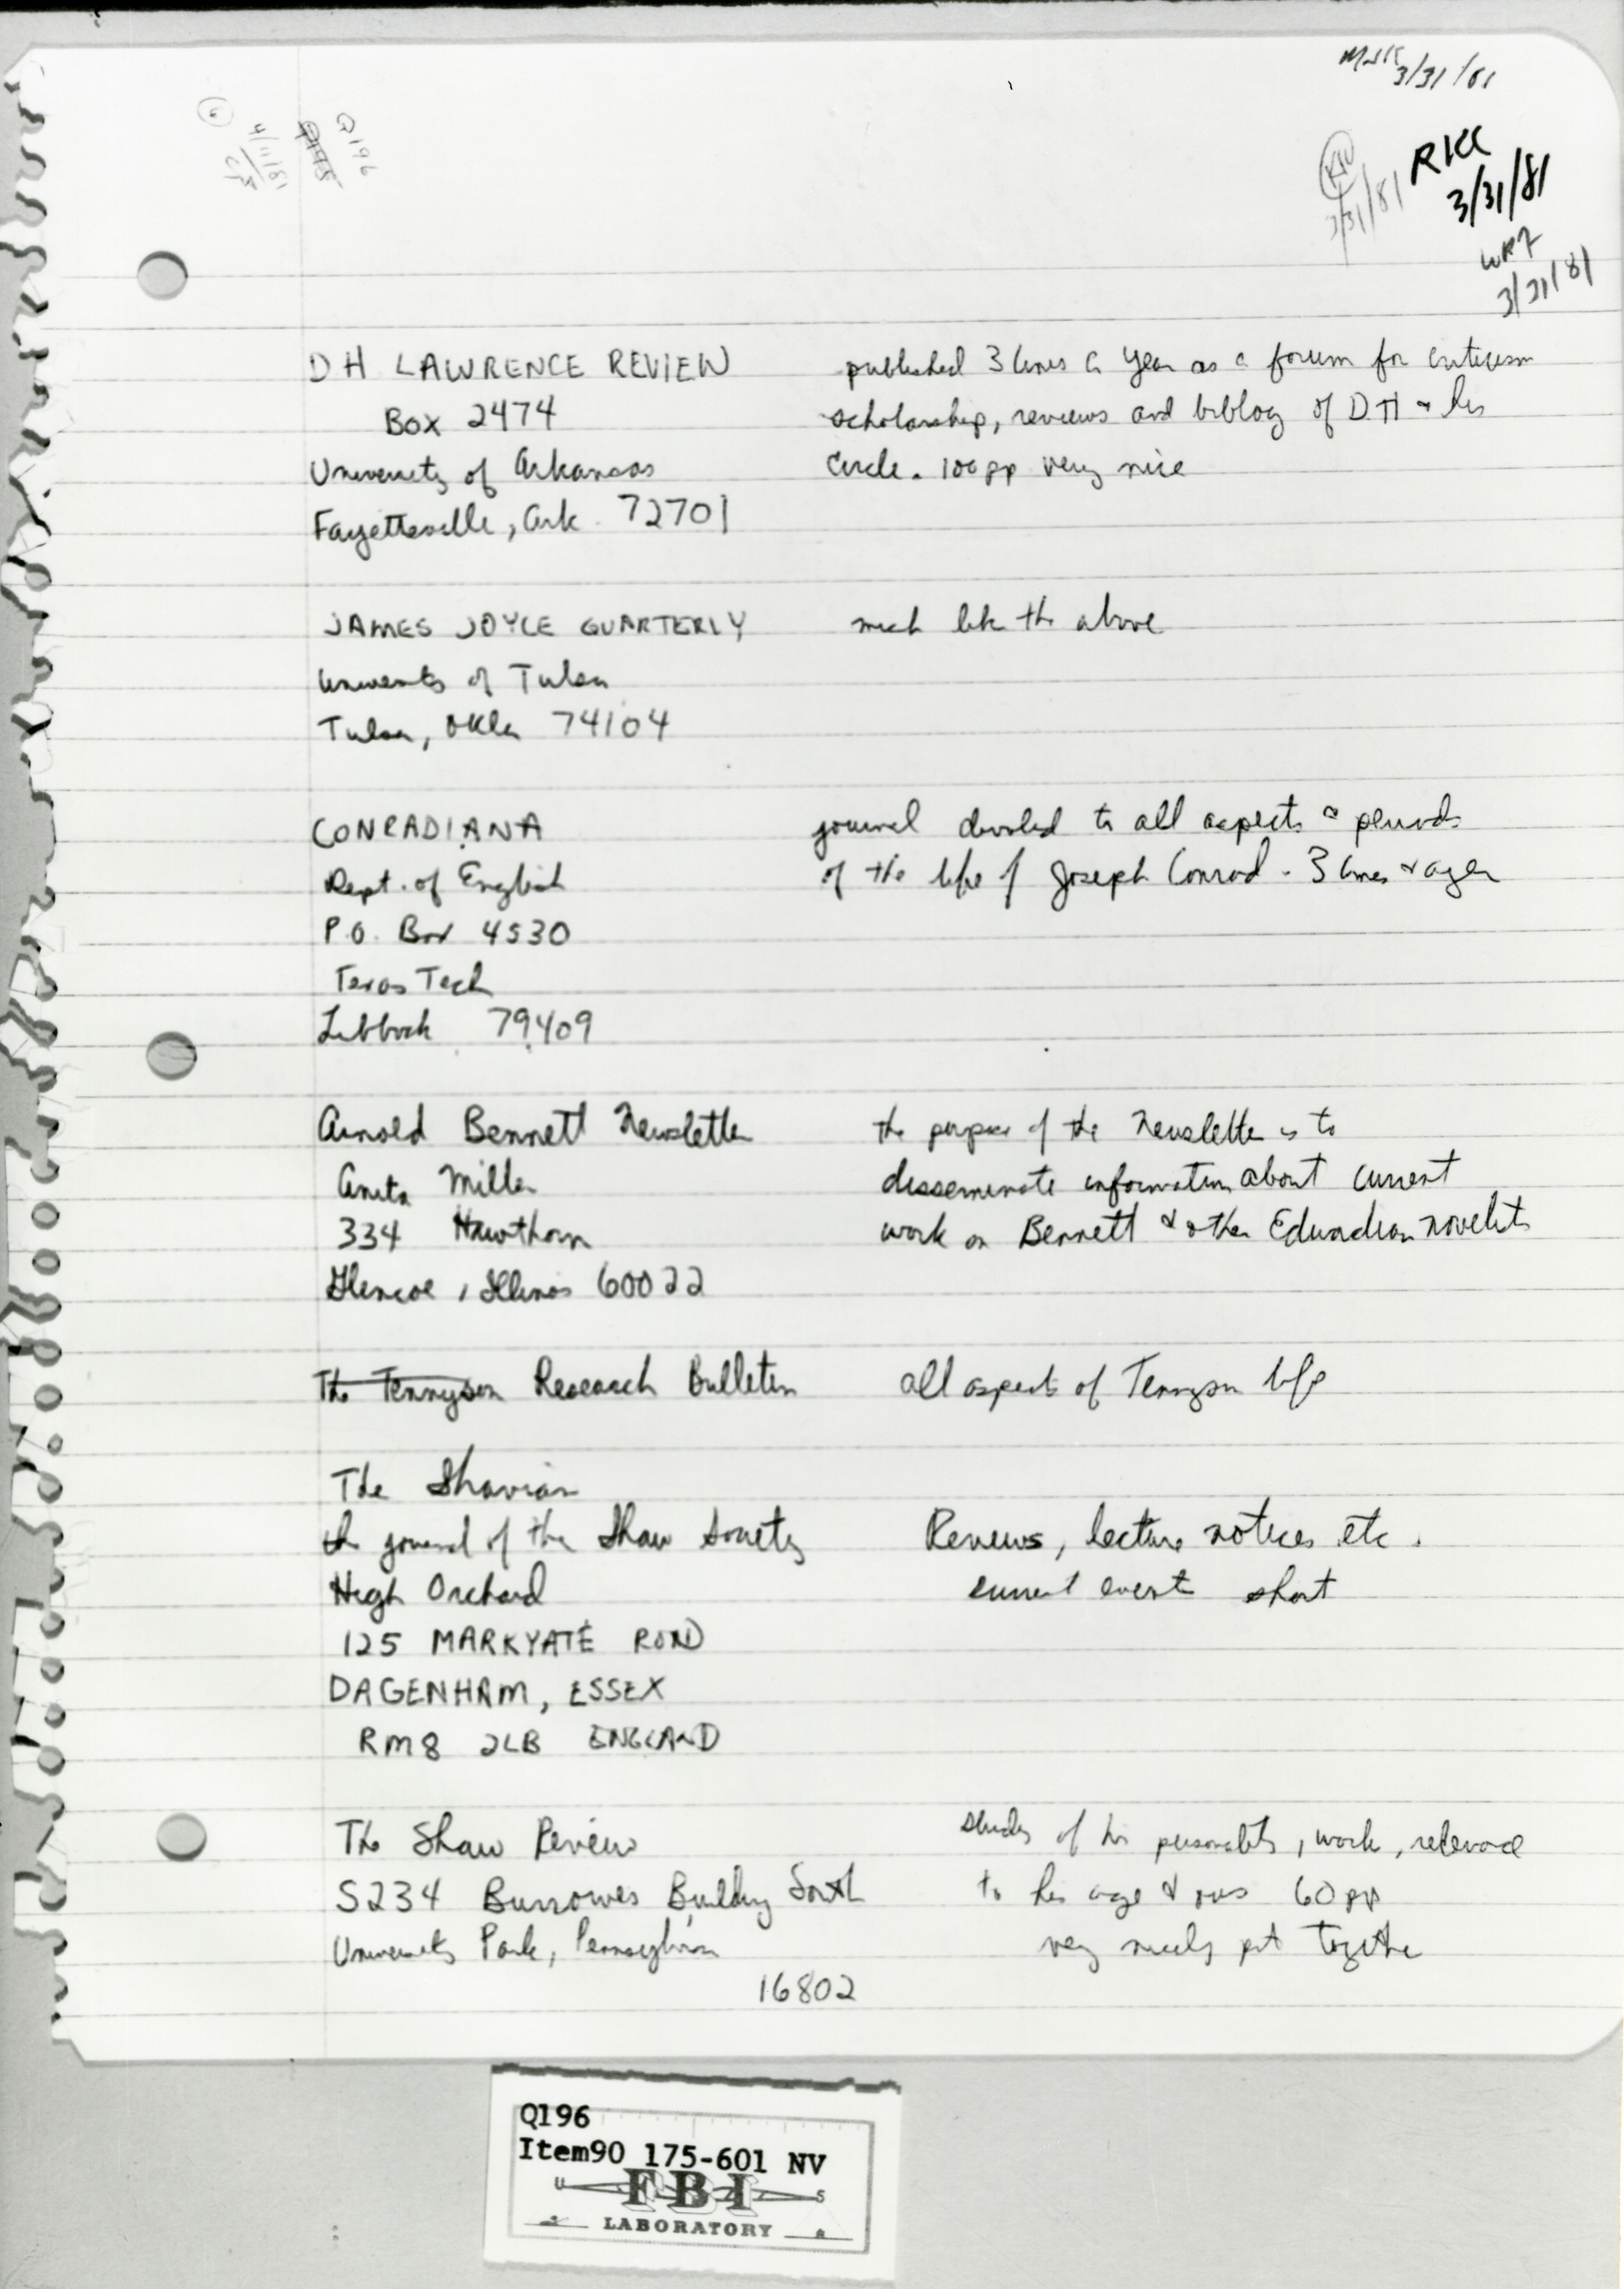 3/31/81
RKC
3/31/81
3/31/81
WRF
3/31/81
Q196
4/11/81
DH LAWRENCE REVIEW published 3 times a year as a forum for criticism
Box 2474 scholarship, reviews and biblog of DH & his
University of Arkansas Circle. 100pp very nice
Fayetteville, Ark. 72701
JAMES JOYCE QUARTERLY much like the above
University of Tulsa
Tulsa, Okla 74104
CONRADIANA journal devoted to all aspects & periods
Dept. of English of the life of Joseph Conrad - 3 times a year
P.O. Box 4530
Texas Tech
Lubbock 79409
Arnold Bennett Newsletter The purpose of the Newsletter is to
Anita Miller disseminate information about current
334 Hawthorn work on Bennett & other Edwardian novelists
Glencoe, Illinois 60022
The Tennyson Research Bulletin all aspects of Tennyson life
The Shavian
the journal of the Shaw Society Reviews, lecture notices etc.
High Orchard current events short
125 MARKYATE ROAD
DAGENHAM, ESSEX
RM8 2LB ENGLAND
The Shaw Review studies of his personality, work, relevance
S234 Burrowes Building South to his age & ours 60pp
University Park, Pennsylvania very nicely put together
16802
Q196
Item90 175-601 NV
U FBI S
LABORATORY